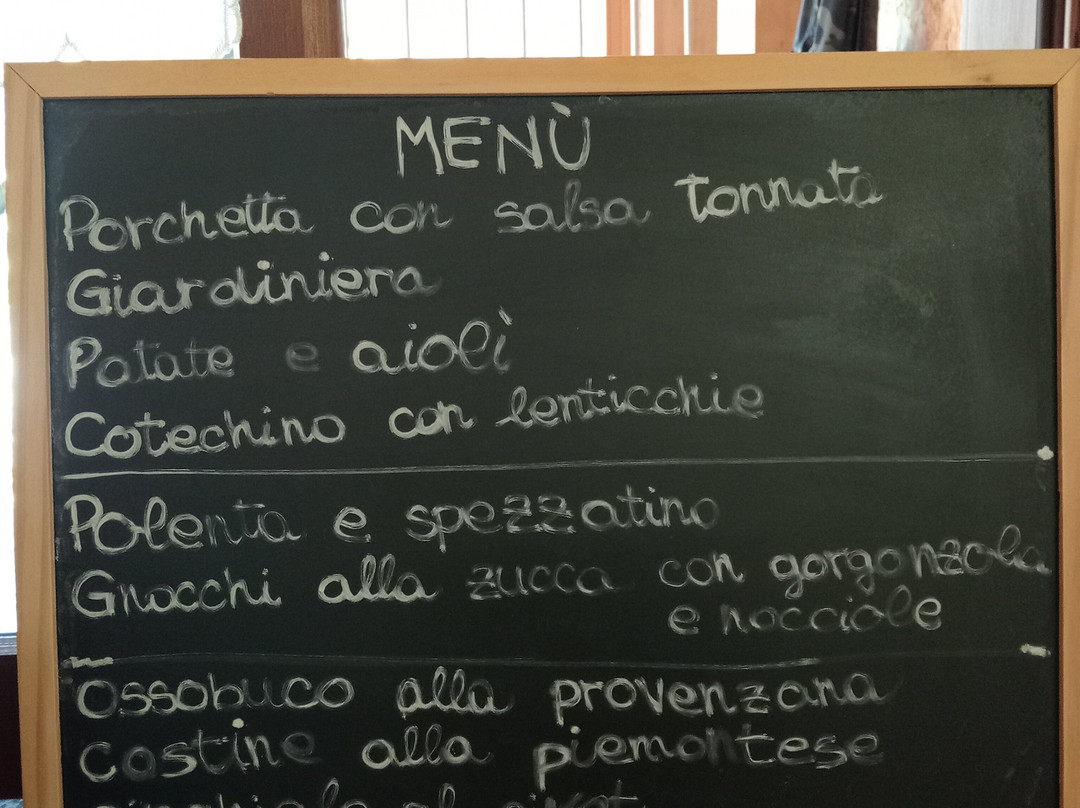 MENÙ
Porchetta con salsa tonnata
Giardiniera
Patate e aiolì
Cotechino con lenticchie
Polenta e spezzatino
Gnocchi alla zucca con gorgonzola
e nocciole
Ossobuco alla provenzana
Costine alla piemontese